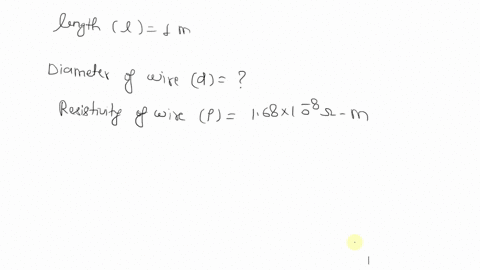 length (l) = 1 m
Diameter of wire (d) = ?
Resistivity of wire (ρ) = 1.68 × 10⁻⁸ Ω-m